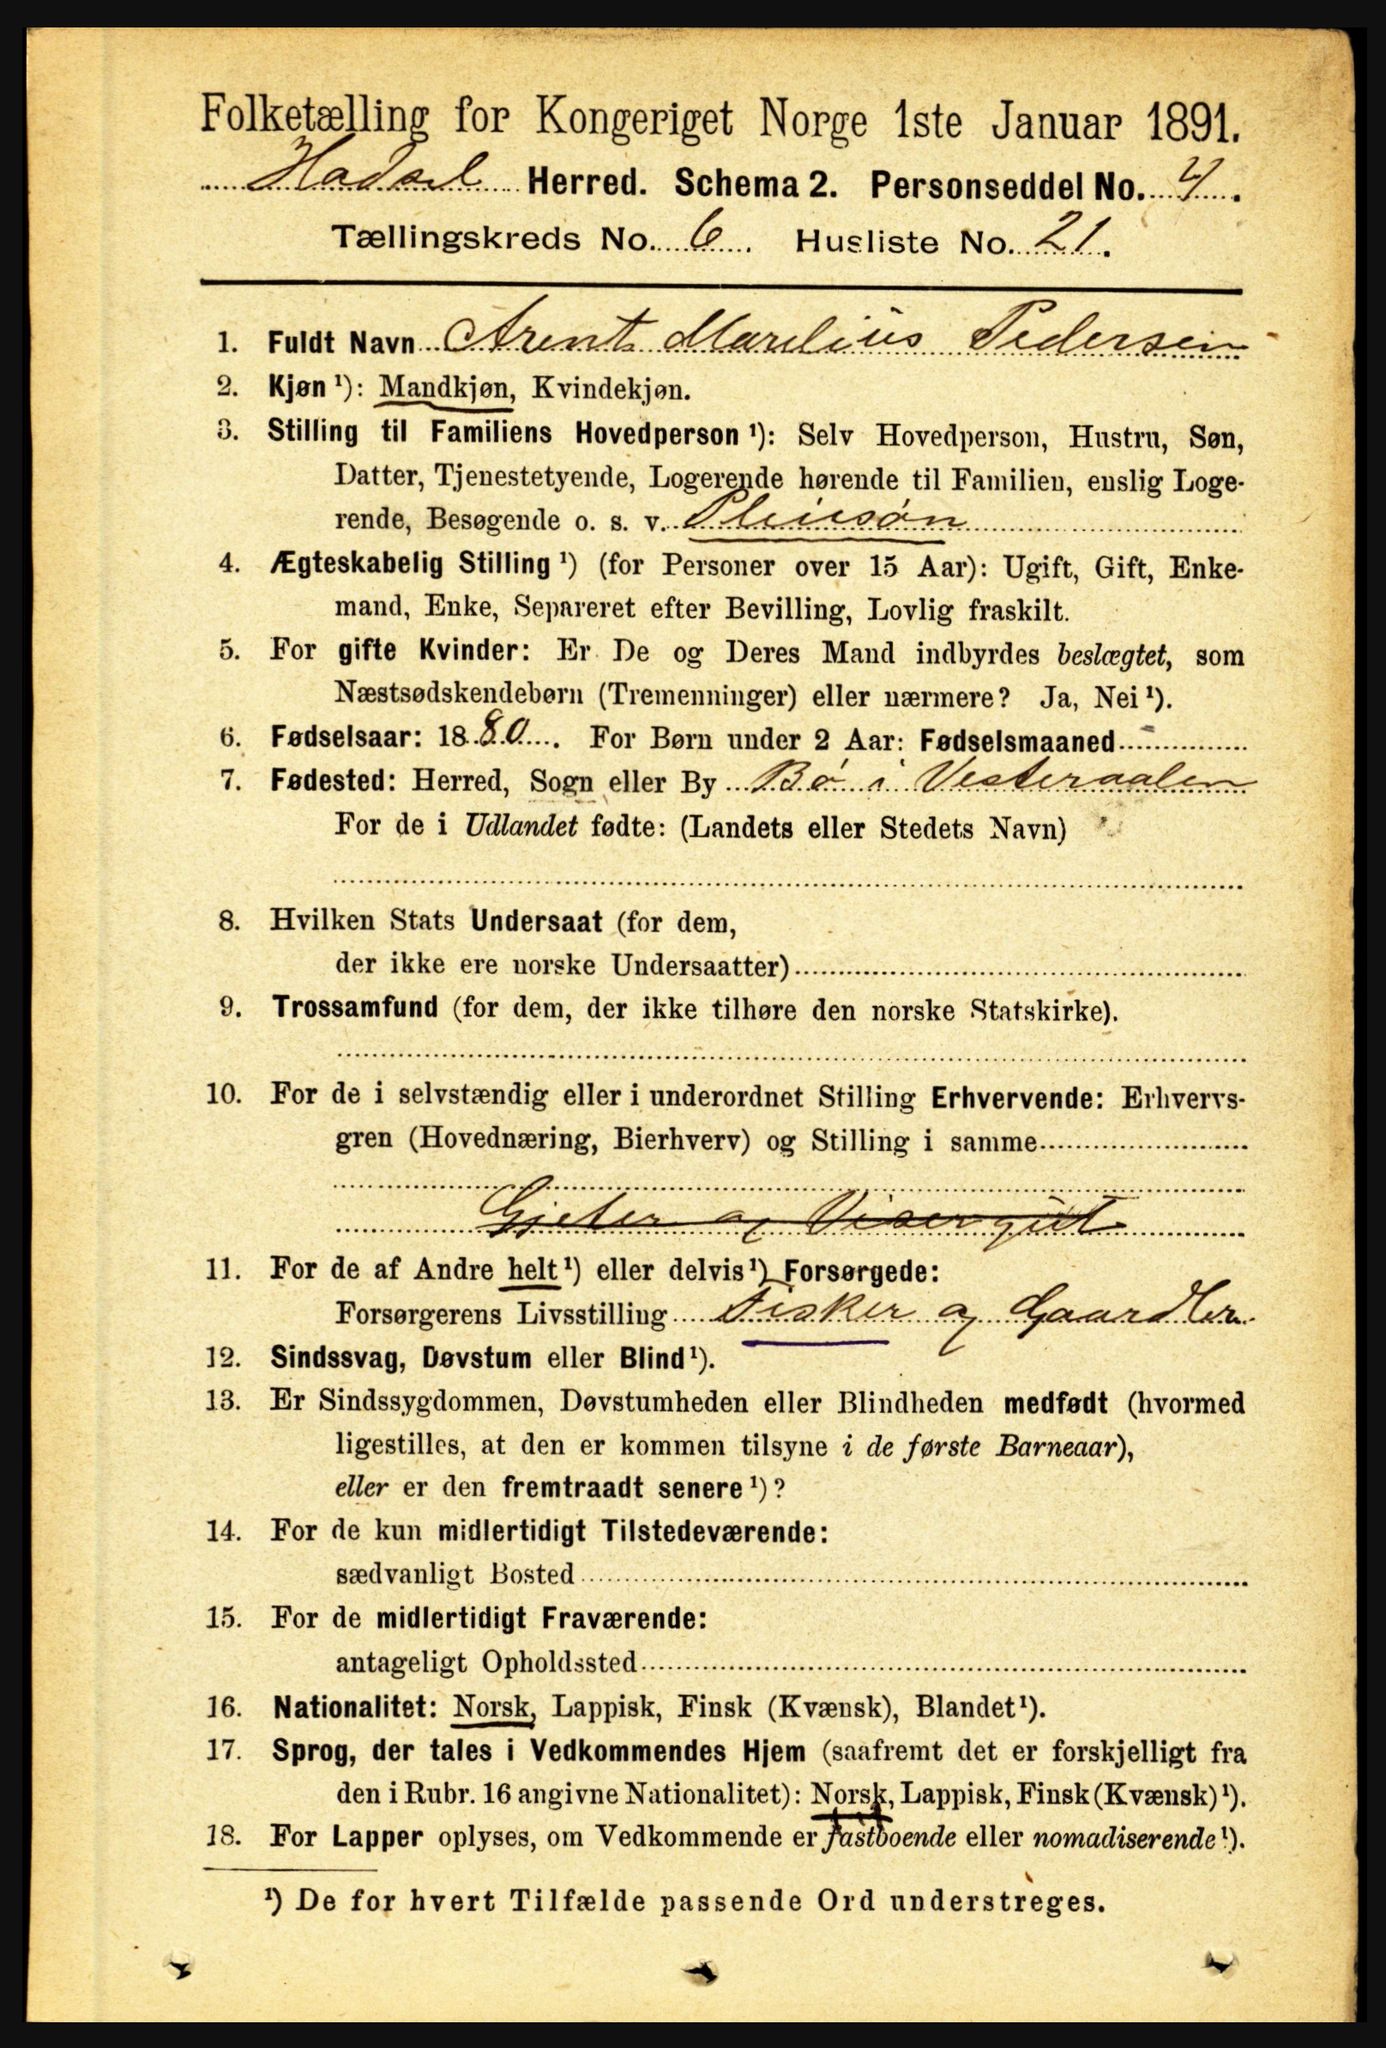 Folketælling for Kongeriget Norge 1ste Januar 1891.
Hadsel Herred. Schema 2. Personseddel No. 4.
Tællingskreds No. 6. Husliste No. 21.
1. Fuldt Navn Arent Marelius Pedersen
2. Kjøn ¹): Mandkjøn, Kvindekjøn.
3. Stilling til Familiens Hovedperson ¹): Selv Hovedperson, Hustru, Søn,
Datter, Tjenestetyende, Logerende hørende til Familien, enslig Loge-
rende, Besøgende o. s. v. Pleiesøn
4. Ægteskabelig Stilling ¹) (for Personer over 15 Aar): Ugift, Gift, Enke-
mand, Enke, Separeret efter Bevilling, Lovlig fraskilt.
5. For gifte Kvinder: Er De og Deres Mand indbyrdes beslægtet, som
Næstsødskendebørn (Tremenninger) eller nærmere? Ja, Nei ¹).
6. Fødselsaar: 1880. For Børn under 2 Aar: Fødselsmaaned
7. Fødested: Herred, Sogn eller By Bø i Vesteraalen
For de i Udlandet fødte: (Landets eller Stedets Navn)
8. Hvilken Stats Undersaat (for dem,
der ikke ere norske Undersaatter)
9. Trossamfund (for dem, der ikke tilhøre den norske Statskirke).
10. For de i selvstændig eller i underordnet Stilling Erhvervende: Erhvervs-
gren (Hovednæring, Bierhverv) og Stilling i samme
Gjeter og Visergut
11. For de af Andre helt ¹) eller delvis ¹) Forsørgede:
Forsørgerens Livsstilling Fisker og Gaardbr.
12. Sindssvag, Døvstum eller Blind ¹).
13. Er Sindssygdommen, Døvstumheden eller Blindheden medfødt (hvormed
ligestilles, at den er kommen tilsyne i de første Barneaar),
eller er den fremtraadt senere ¹)?
14. For de kun midlertidigt Tilstedeværende:
sædvanligt Bosted
15. For de midlertidigt Fraværende:
antageligt Opholdssted
16. Nationalitet: Norsk, Lappisk, Finsk (Kvænsk), Blandet ¹).
17. Sprog, der tales i Vedkommendes Hjem (saafremt det er forskjelligt fra
den i Rubr. 16 angivne Nationalitet): Norsk, Lappisk, Finsk (Kvænsk) ¹).
18. For Lapper oplyses, om Vedkommende er fastboende eller nomadiserende ¹).
¹) De for hvert Tilfælde passende Ord understreges.